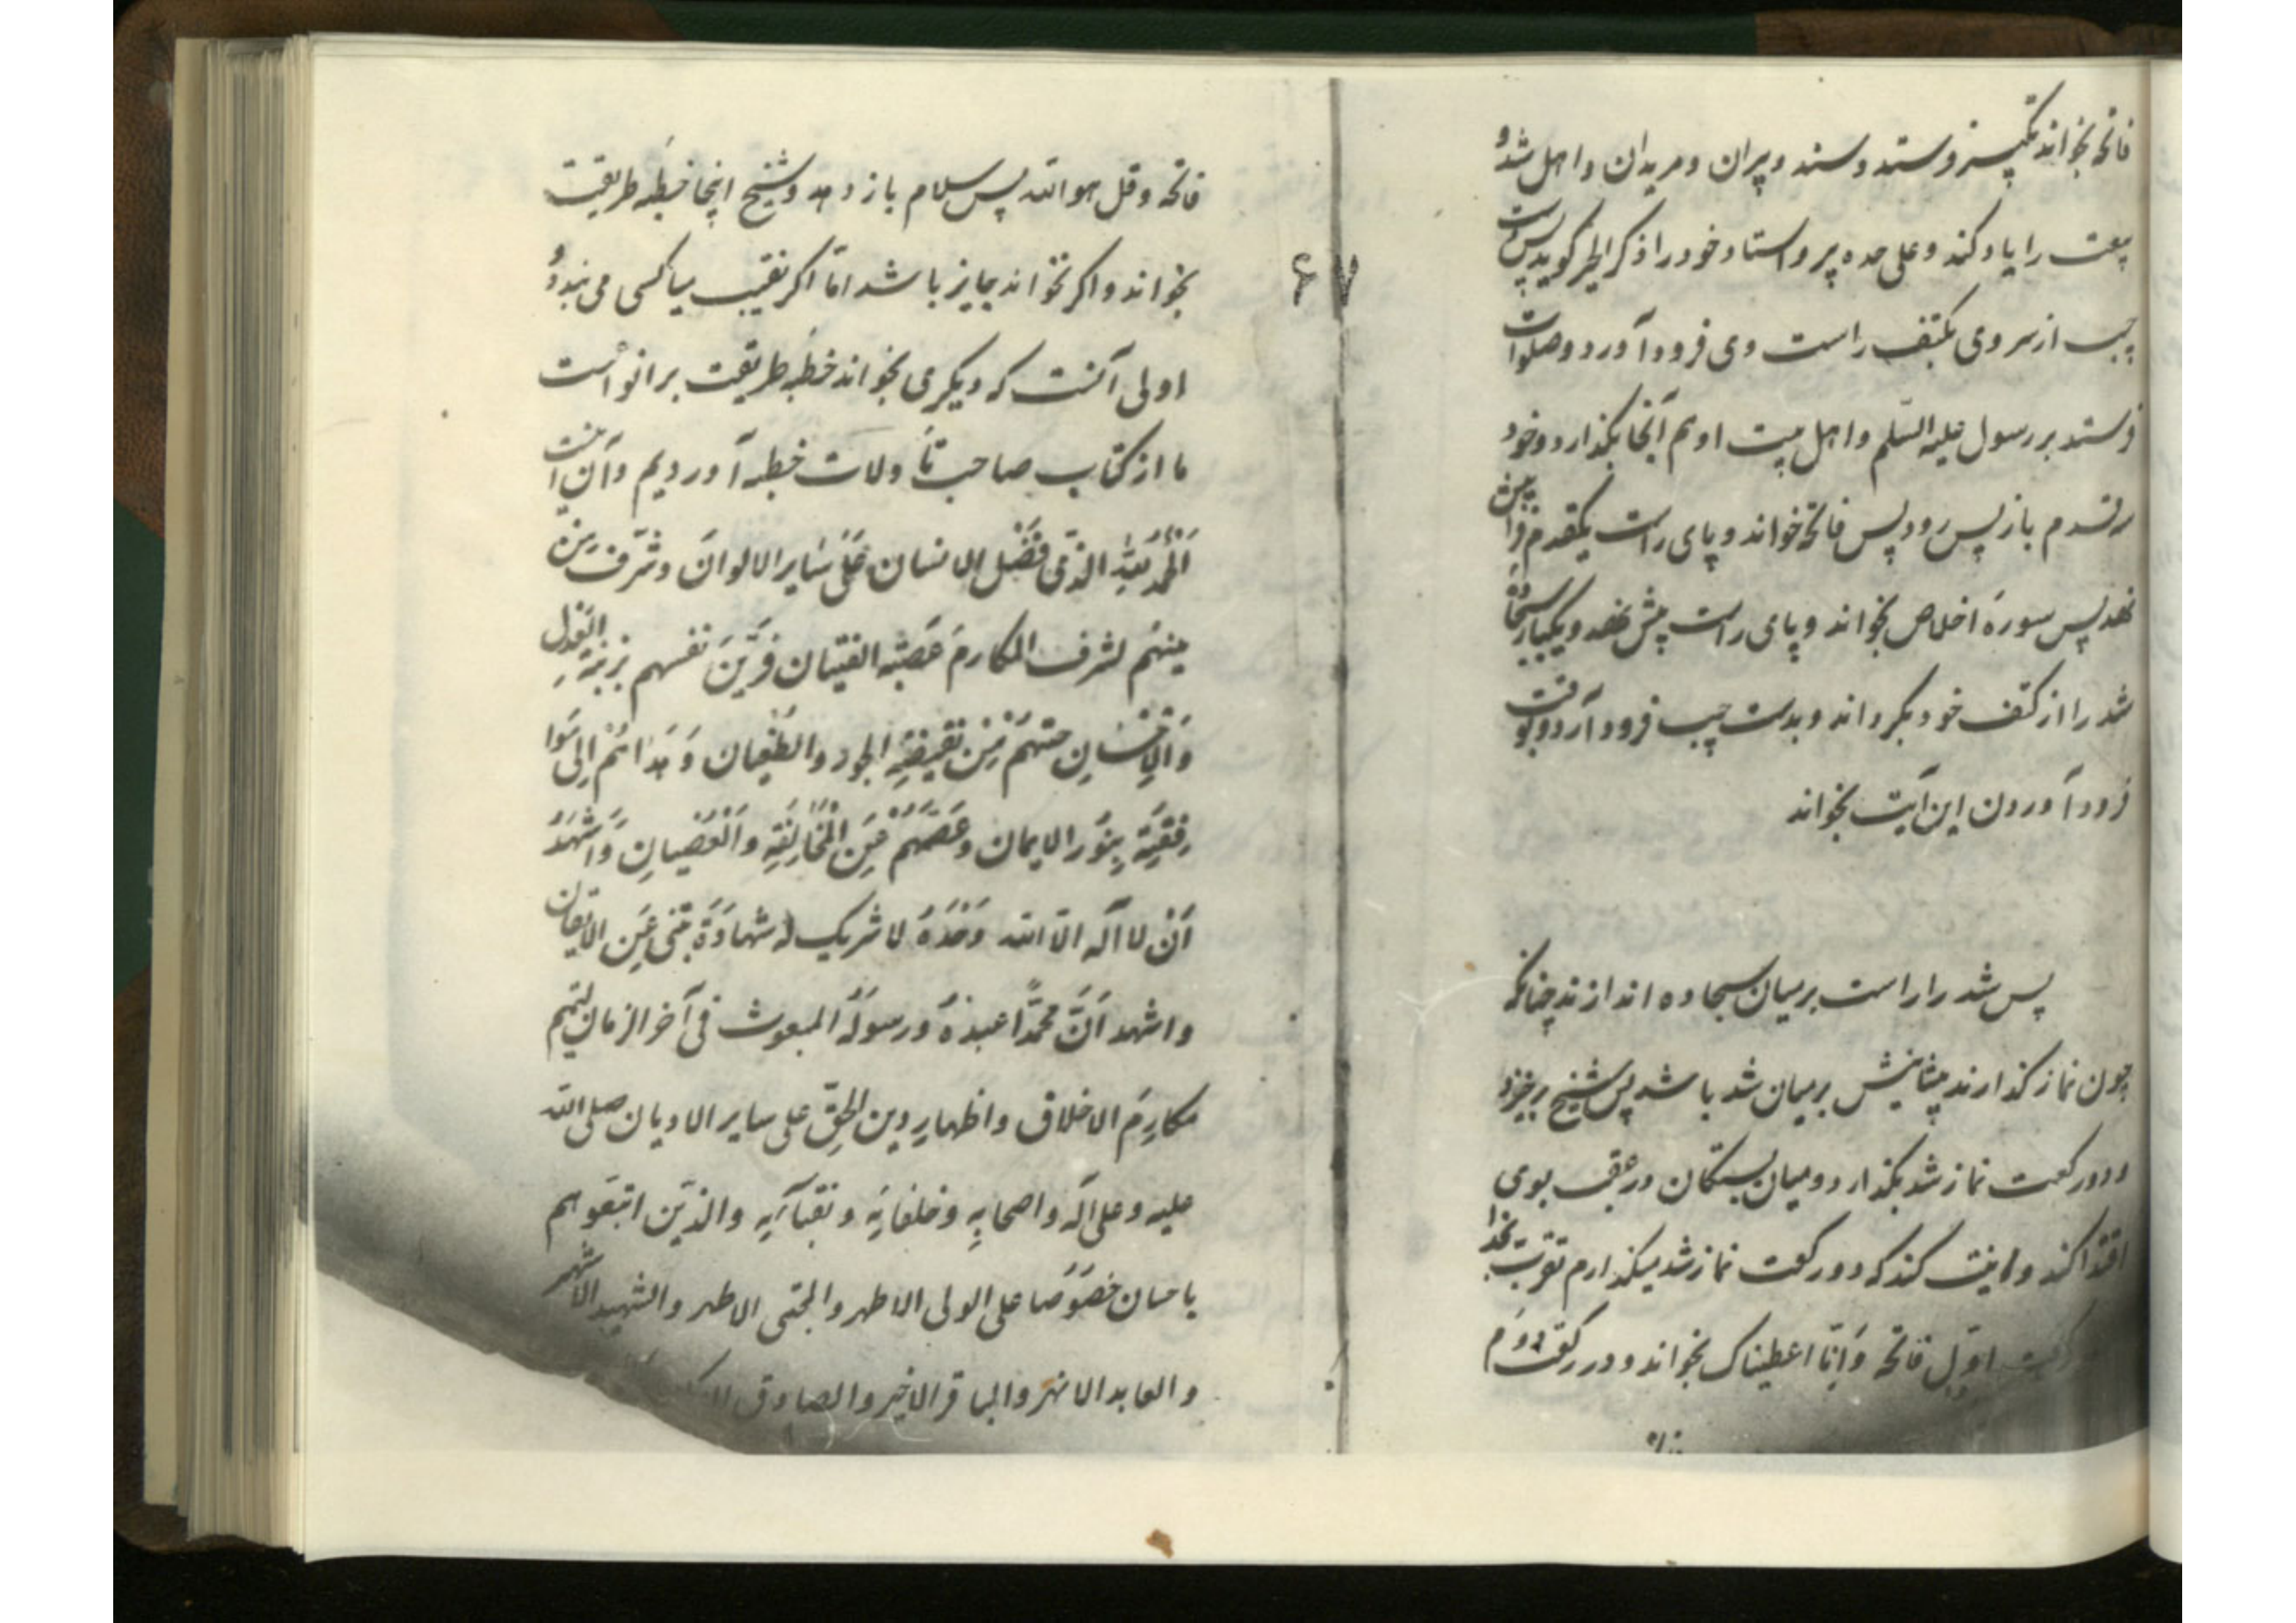 فاتحه بخواند تکبیر فرستد و سند و پیران و مریدان و اهل شد و
بیعت را یاد کند و علی حده پیر و استاد خود را ذکر الخیر گوید پس بدست
چپ از سر وی بکتف راست وی فرود آورد و صلوات
فرستد بر رسول علیه السلم و اهل بیت او هم آنجا بگذارد و خود
قدم باز پس رود پس فاتحه خواند و پای راست یکقدم فرا پیش
نهد پس سورهٔ اخلاص بخواند و پای راست پیش نهد و یکبار
شد را از کتف خود بگرداند و بدست چپ فرود آرد و بوقت
فرود آوردن این آیت بخواند
پس شد را راست بر میان سجاده اندازند چنانکه
چون نماز گذارند پیشانیش بر میان شد باشد پس شیخ برخیزد
و دو رکعت نماز شد بگذارد و میان بستگان در عقب بوی
اقتدا کنند و نیت کند که دو رکعت نماز شد میگذارم تقرب بخدا
رکعت اول فاتحه و انّا اعطیناک بخواند و در رکعت دوم
۶۷
فاتحه و قل هو الله پس سلام باز دهد و شیخ اینجا خطبه طریقت
بخواند و اگر نخواند جایز باشد امّا اگر نقیب میان کسی می بندد
اولی آنست که دیگری بخواند خطبه طریقت
ما از کتاب صاحب تاولات خطبه آوردیم و آن اینست
اَلْحَمْدُ لِلّٰهِ الذّی فَضَّل الانسان عَلَی سَایر الالوانَ و شَرَّف
مِنهُم لشرف المکارمَ عَصَبَه الفتیان فَزَیَّنَ نفسهم بزینةِ العَدل
وَالاِحْسَانِ منهُمْ مِنْ نَقیضَةِ الجور والطُغیان وَ هَدَاهُمْ اِلی سَوا
بِنُورِ الایمان وَعَصَمَهُمْ عَنِ الْمُخَالِفَةِ وَالْعِصْیانِ وَاَشهَدُ
اَنْ لا اله الّا الله وَحْدَهُ لا شریک له شهادَةً عَنِ الایقان
و اشهد اَنَّ محمّدًا عبدُهُ وَرسولَهُ المبعوث فی آخر الزمان لتتمیم
مکارِمَ الاخلاق و اظهارِ دین الحقّ علی سایر الادیان صلی الله
علیه و علی آله و اصحابِهِ و خلفایَه و نقبآیهِ والذّین اتبعَوهم
باحسان خصُوصًا علی الولی الاطهر والمجتبی الاطهر والشهید الاشهر
والعابد الازهر والباقر الاخیر والصادق